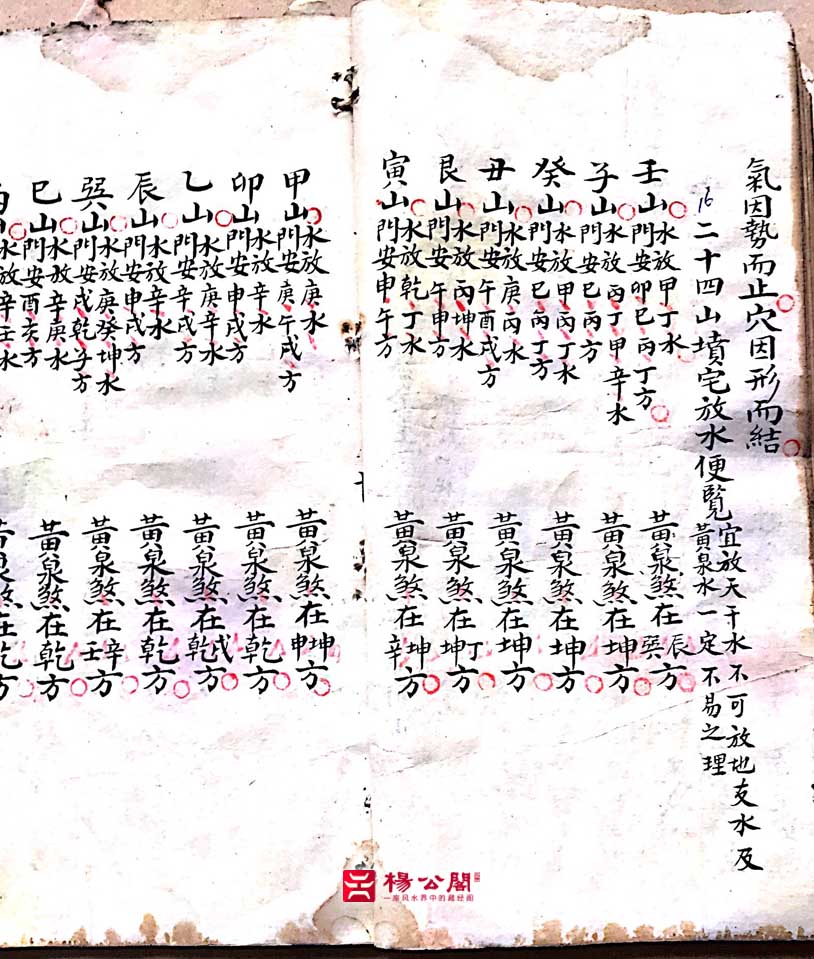 氣因勢而止穴因形而結
16
二十四山墳宅放水便覽
宜放天干水不可放地支水及
黃泉水一定不易之理
壬山水放甲丁水
門安卯巳丙丁方
黃泉煞在辰巽方
子山水放丙丁甲辛水
門安巳丙方
黃泉煞在坤方
癸山水放甲丙丁水
門安巳丙丁方
黃泉煞在坤方
丑山水放庚丙水
門安午酉戌方
黃泉煞在坤方
艮山水放丙坤水
門安午申方
黃泉煞在丁坤方
寅山水放乾丁水
門安申午方
黃泉煞在坤辛方
甲山水放庚水
門安庚午戌方
黃泉煞在坤申方
卯山水放辛水
門安申戌方
黃泉煞在乾方
乙山水放庚辛水
門安辛戌方
黃泉煞在戌乾方
辰山水放辛水
門安申戌方
黃泉煞在乾方
巽山水放庚癸坤水
門安戌乾子方
黃泉煞在辛壬方
巳山水放辛庚水
門安酉亥方
黃泉煞在乾方
水放辛壬水
煞在乾方
楊公閣
一座风水界中的藏经阁